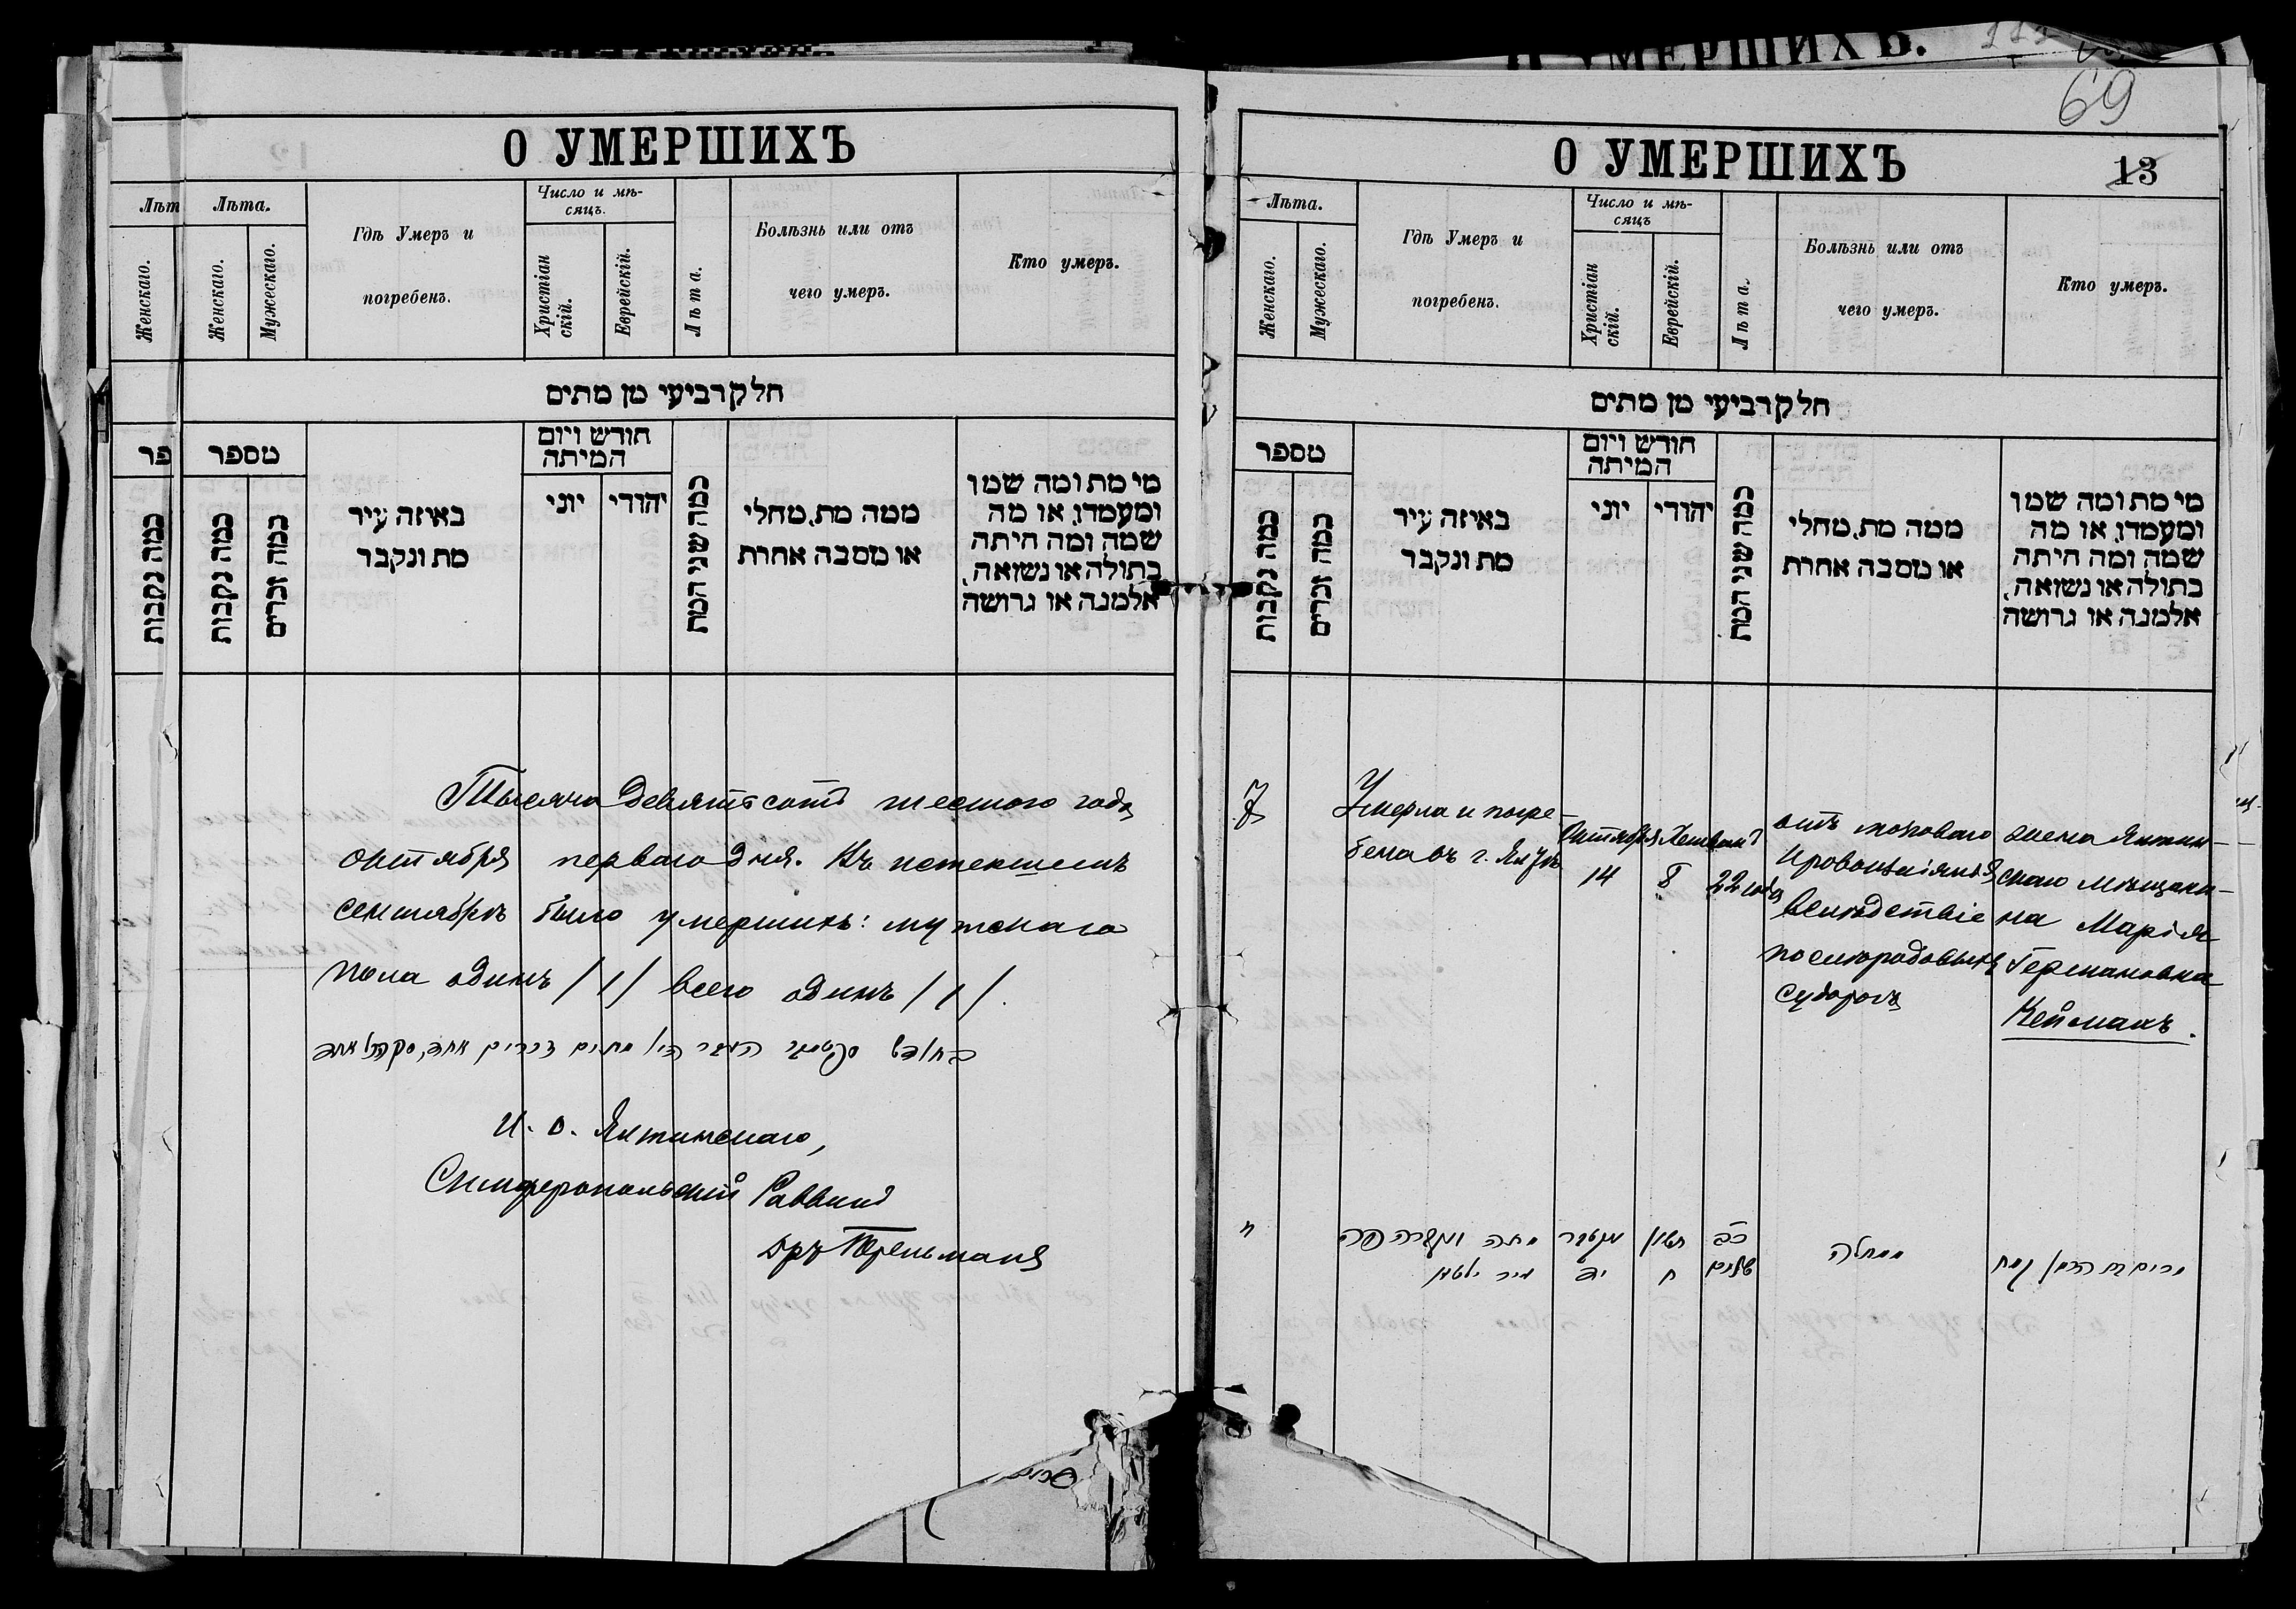 О УМЕРШИХЪ
Лѣт
Лѣта.
Женскаго.
Женскаго.
Мужескаго.
Гдѣ Умеръ и
погребенъ.
Число и мѣ-
сяцъ.
Христіан
скій.
Еврейскій.
Лѣта.
Болѣзнь или отъ
чего умеръ.
Кто умеръ.
חלק רביעי מן מתים
פר
מספר
כמה נקבות
כמה נקבות
כמה זכרים
באיזה עיר
מת ונקבר
חודש ויום
המיתה
יוני
יהודי
כמה שני המת
ממה מת, מחלי
או מסבה אחרת
מי מת ומה שמו
ומעמדו, או מה
שמה ומה היתה
בתולה או נשואה,
אלמנה או גרושה
Тысяча девятьсотъ шестого года
октября перваго дня. Въ истекшемъ
сентябрѣ было умершихъ: мужскаго
пола одинъ /1/ всего одинъ /1/.
И. о. Ялтинскаго,
Симферопольскій Раввинъ
О УМЕРШИХЪ.
69
О УМЕРШИХЪ
13
Лѣта.
Женскаго.
Мужескаго.
Гдѣ Умеръ и
погребенъ.
Число и мѣ-
сяцъ
Христіан
скій.
Еврейскій.
Лѣта.
Болѣзнь или отъ
чего умеръ.
Кто умеръ.
חלק רביעי מן מתים
מספר
כמה נקבות
כמה זכרים
באיזה עיר
מת ונקבר
חודש ויום
המיתה
יוני
יהודי
כמה שני המת
ממה מת, מחלי
או מסבה אחרת
מי מת ומה שמו
ומעמדו, או מה
שמה ומה היתה
בתולה או נשואה,
אלמנה או גרושה
7
Умерла и погре-
бена въ г. Ялтѣ
Октября
14
Хешванъ
8
22 года
отъ
вслѣдствіе
послѣродовыхъ
судорогъ
жена Ялтин-
скаго мѣщани-
на Марія
Германовна
Нейманъ.
מתה ונקברה פה
עיר יאלטא
אקטבר
יד
חשון
ח
כב
שנים
מחלה